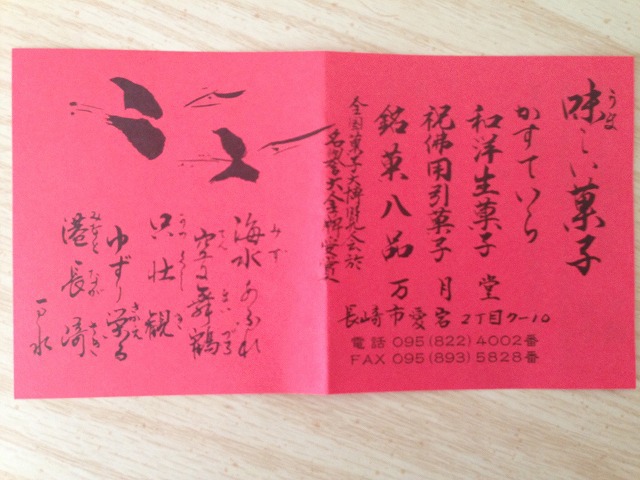 うま
味しい菓子
かすていら
和洋生菓子
祝佛用引菓子
銘菓八品
万月堂
全国菓子大博覧会於
名譽大金牌受賞
長崎市愛宕2丁目7-10
電話 095(822)4002番
FAX 095(893)5828番
海水あふれ
みず
空に舞鶴
てん まいづる
只壮観
ゆずり栄る
さかえ
港長崎
みなと ながさき